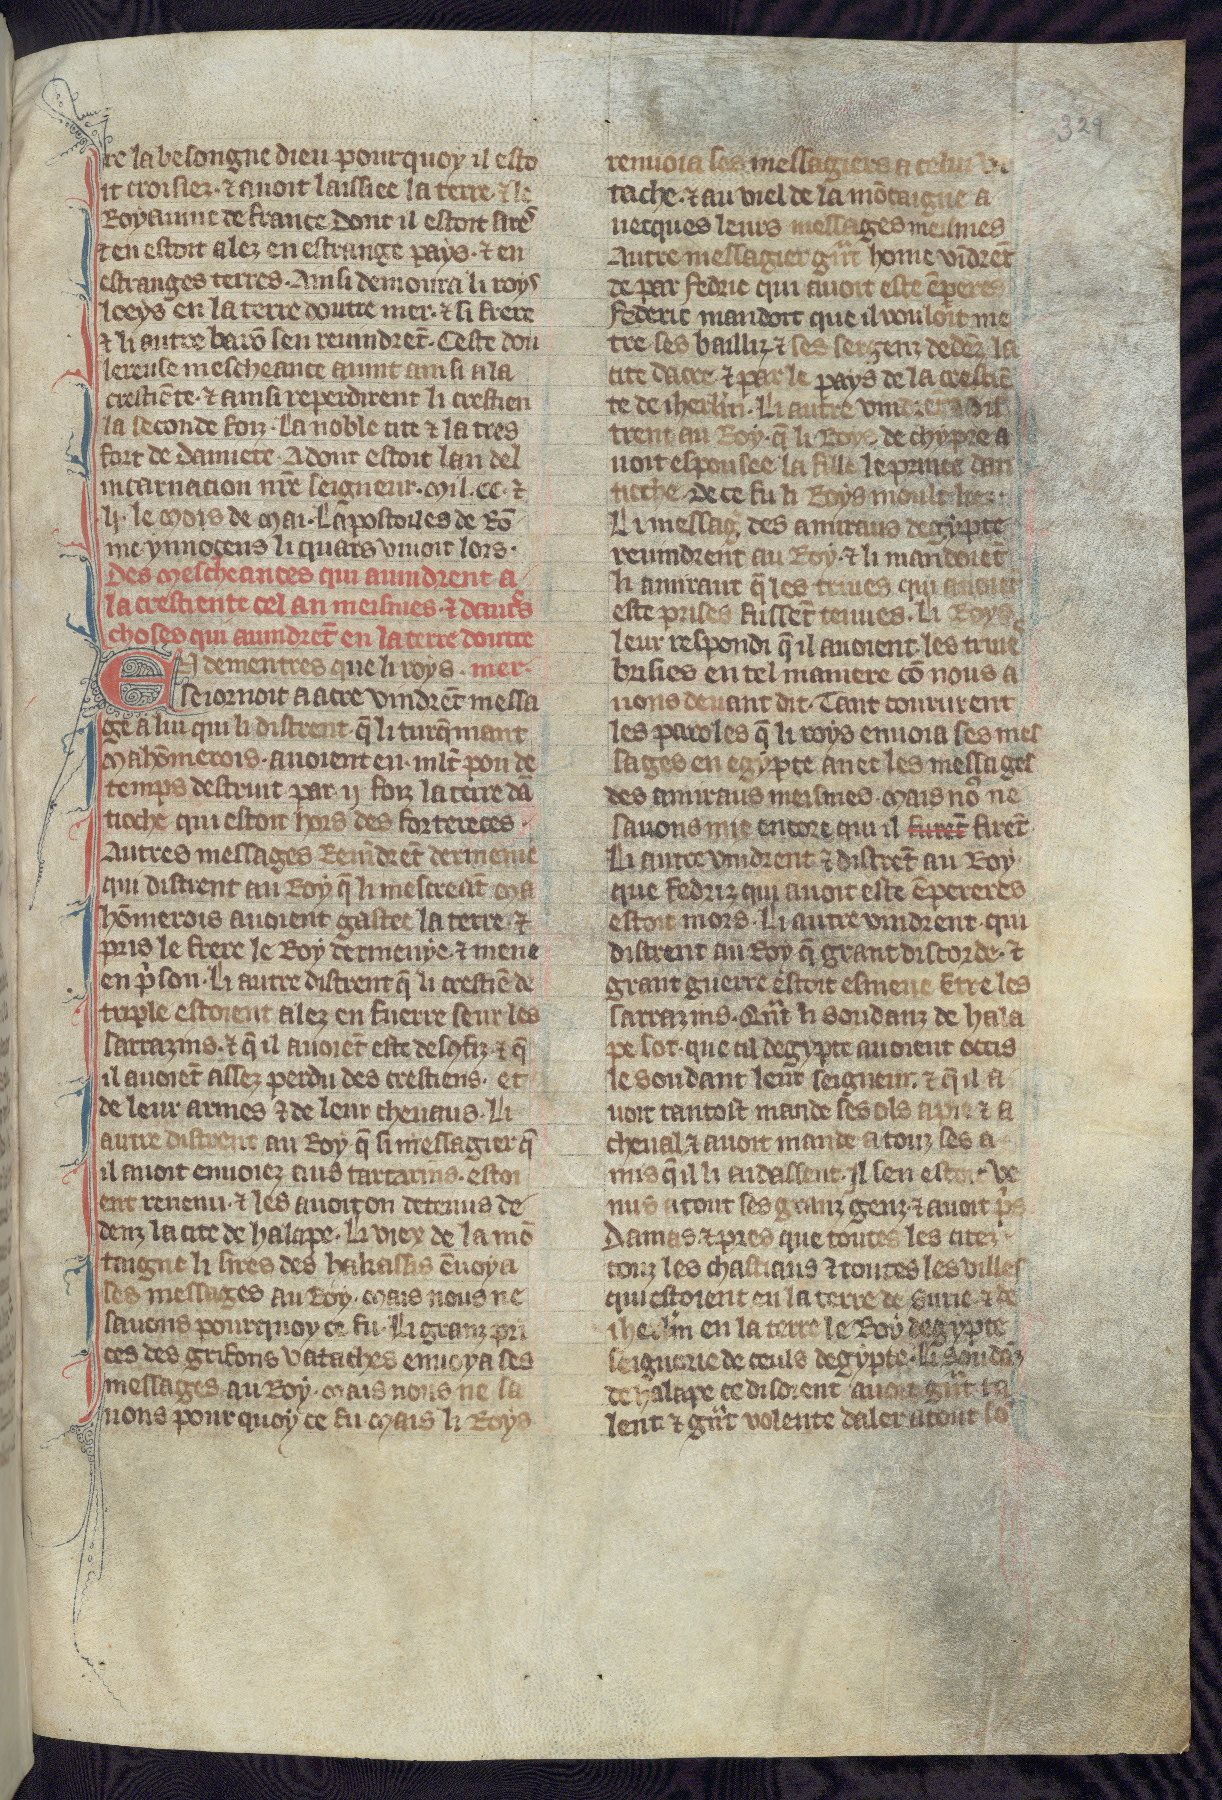 329
re la besongne dieu pourquoy il esto
it croisiez · ⁊ auoit laissiee la terre · ⁊ le
Royaume de france Dont il estoit sires
⁊ en estoit alez en estrange pays · ⁊ en
estranges terres · Ainsi demoura li roys
loeys en la terre doutre mer · ⁊ si frere
⁊ li autre barō sen reuindrēt · Ceste dou
lereuse mescheance auint ainsi a la
crestiēte · ⁊ ainsi reperdirent li crestien
la seconde foiz · La noble cite ⁊ la tres
fort de Damiete · Adont estoit lan del
incarnacion nr̄e seigneur · Mil · CC · ⁊
lj · le Mois de Mai · Lapostoiles de Rō
me ynnocens li quars viuoit lors ·
Des Mescheances qui auindrent a
la crestiente cel an meismes · ⁊ dautres
choses qui auindrēt en la terre doutre
En dementres que li roys · mer ·
seiornoit a acre vindrēt messa
ge a lui qui li distrent · q̄ li turq̄mant
Mahōmerois · auoient en · mlt̄ pou de
temps destruit par ij foiz la terre dā
tioche qui estoit hors des fortereces ·
Autres messages Reuīdrēt dermenie
qui distrent au Roy q̄ li mescreāt Ma
hōmerois auoient gastee la terre · ⁊
pris le frere le Roy dermenye · ⁊ mene
en p̄son · Li autre distrent q̄ li crestiē de
triple estoient alez en fuerre seur les
sarrazins · ⁊ q̄ il auoiēt este desc̄fiz · ⁊ q̄
il auoiēt assez perdu des crestiens · et
de leur armes ⁊ de leur cheuaus · Li
autre distrent au Roy q̄ si messagier q̄
il auoit enuoiez aus tartarins · estoi
ent reuenu · ⁊ les auoit on detenus de
denz la cite de halape · Li viex de la mō
taigne li sires des hakassis ēuoya
ses messages au Roy · Mais nous ne
sauons pourquoy ce fu · Li granz prī
ces des grifons vataches enuoya ses
messages au Roy · Mais nous ne sa
uons pour quoy ce fu Mais li Roys
renuoia ses messagiers a celui va
tache · ⁊ au viel de la mōtaigne a
uecques leurs messages meismes
Autre messagier gr̄t home vīdrēt
de par fedric qui auoit este ēperes
federic mandoit que il vouloit me
tre ses bailliz ⁊ ses sergenz dedēz la
cite dacre · ⁊ par le pays de la crestiē
te de iherlm̄ · Li autre vindrent ⁊ dis
trent au Roy · q̄ li Roys de chypre a
uoit espousee la fille le prince dan
tioche · De ce fu li Roys moult liez ·
Li messag̃ des amiraus degypte
reuindrent au Roy · ⁊ li mandoiēt
li amiraut q̄ les triues qui auoiēt
este prises fussēt tenues · Li Roys
leur respondi q̄ il auoient les triues
brisies en tel maniere cō nous a
uons deuant dit · Tant coururent
les paroles q̄ li roys enuoia ses mes
sages en egypte auec les messages
des amiraus meismes · Mais nō ne
sauons mie encore qui il furēt firēt
Li autre vindrent ⁊ distrēt au Roy ·
que fedriz qui auoit este ēpereres
estoit mors · Li autre vindrent · qui
distrent au Roy q̄ grant discorde · ⁊
grant guerre estoit esmeue ētre les
sarrazins · Qr̄t li soudanz de hala
pe sot · que cil degypte auoient occis
le soudant leur seigneur · ⁊ q̄ il a
uoit tantost mande ses ols a pie ⁊ a
cheual ⁊ auoit mande a touz ses a
mis q̄ il li aidassent · Il sen estoit ve
nus a tout ses granz genz · ⁊ auoit p̄s
Damas · ⁊ pres que toutes les citez ·
touz les chastiaus ⁊ toutes les villes
qui estoient en la terre de Surie · ⁊ de
iherlm̄ en la terre le Roy degypte
seignorie de ceuls degypte · Li soudāz
de halape ce disoient auoit gr̄t ta
lent · ⁊ gr̄t volente daler a tout so